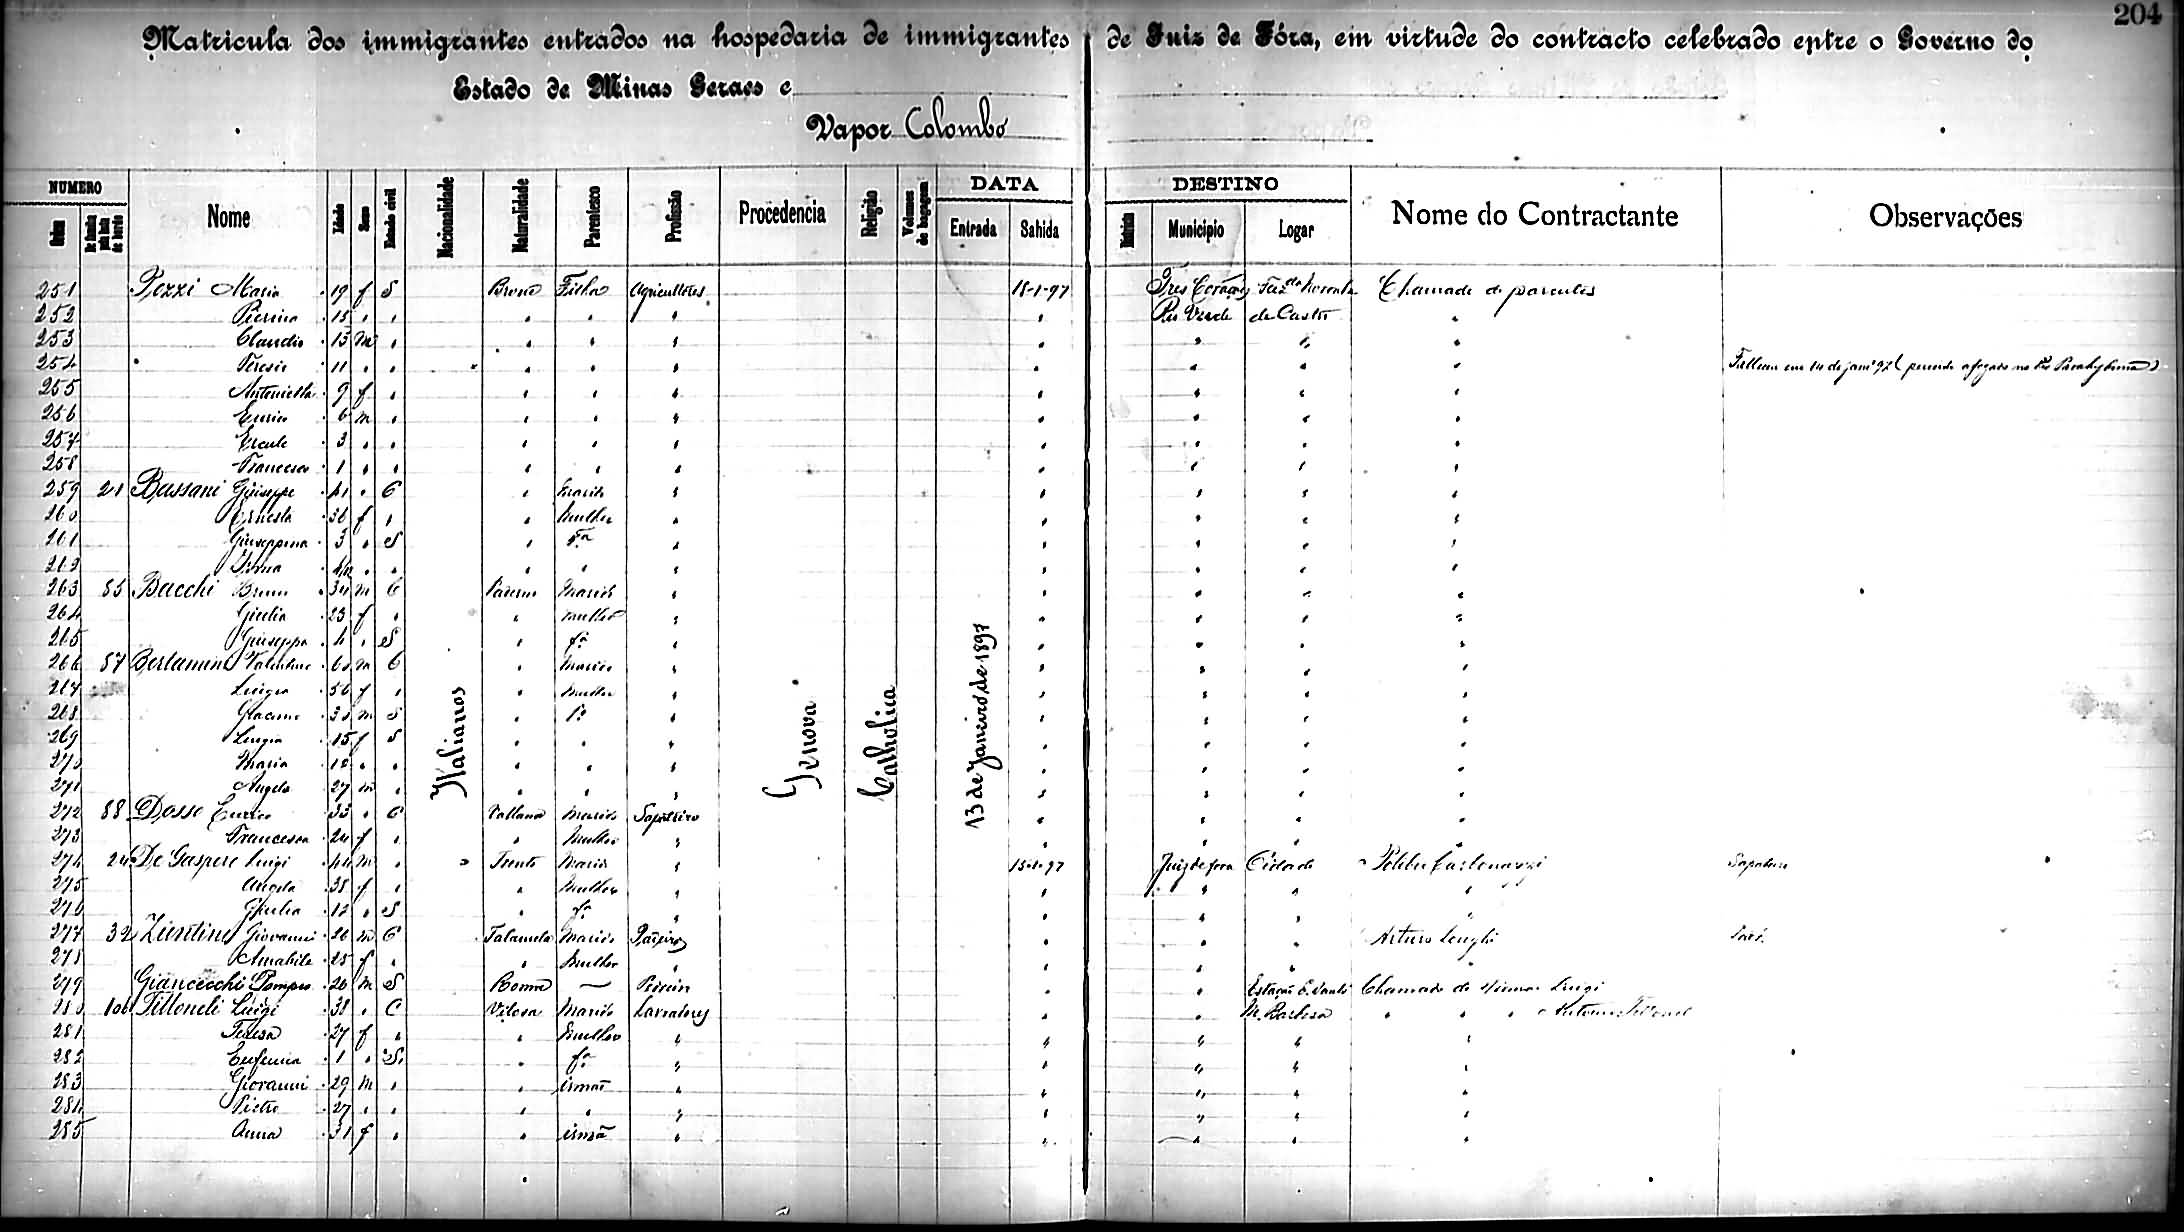 204
Matricula dos immigrantes entrados na hospedaria de immigrantes de Juiz de Fóra, em virtude do contracto celebrado entre o Governo do
Estado de Minas Geraes e
Vapor Colombo
NUMERO DATA DESTINO
Ordem Nome Idade Sexo Estado civil Nacionalidade Naturalidade Parentesco Profissão Procedencia Religião Volumes de bagagem Entrada Sahida Districto Municipio Logar Nome do Contractante Observações
251 Pezzi Maria 19 f S Filha Agricultores 18-1-97 Tres Corações Chamado de parentes
252 Pierina 15 " " " " " " Rio Verde de Castro "
253 Claudio 13 m " " " " " " " "
254 11 " " " " " " " " " Falleceu em 14 de janº 97 ( afogado no Rio Parahybuna)
255 Antonietta 9 f " " " " " " " "
256 Enrico 6 m " " " " " " " "
257 Ercule 3 " " " " " " " " "
258 Francesco 1 " " " " " " " " "
259 21 Bassani Giuseppe 41 " C " Marido " " " " "
260 Ernesta 36 f " " Mulher " " " " "
261 Giuseppina 3 " S " fª " " " " "
262 Irma " " " " " " " " "
263 85 Bacchi 34 m C Marido " " " " "
264 Giulia 23 f " " mulher " " " " "
265 Giuseppa 4 " S " fª " " " " "
266 87 Bertamini Valentino 60 m C " Marido " " " " "
267 Luigia 56 f " " Mulher " " " " "
268 Giacomo 30 m S " fº " " " " "
269 Luigia 15 f S " " " " " " "
270 Maria " " " " " " " " "
271 Angelo 27 m " " " " " " " "
Italianos
Genova
Catholica
13 de Janeiro de 1897
272 88 Dosso Enrico 33 " C Marido Sapateiro " " " "
273 Francesca 24 f " " Mulher " " " " "
274 24 De Gaspere Luigi 44 m " Trento Marido " 15-1-97 Juiz de fora Cidade Sapateiro
275 Angela 38 f " " Mulher " " " " "
276 Giulia 12 " S " fª " " " " "
277 32 Giovanni 26 m C Marido " " " Arturo
278 Amabile 25 f " " Mulher " " " " "
279 Giancecchi Pompeo 26 m S Roma — " " Estação Chamado de Luigi
280 Tittoneli Luigi 38 " C Marido Lavradores " " M. Barbosa " " " Antonio
281 Teresa 27 f " " Mulher " " " " "
282 Eufemia 1 " S. " fª " " " " "
283 Giovanni 29 m " " irmão " " " " "
284 Pietro 27 " " " " " " " " "
285 Anna 31 f " " irmã " " " " "